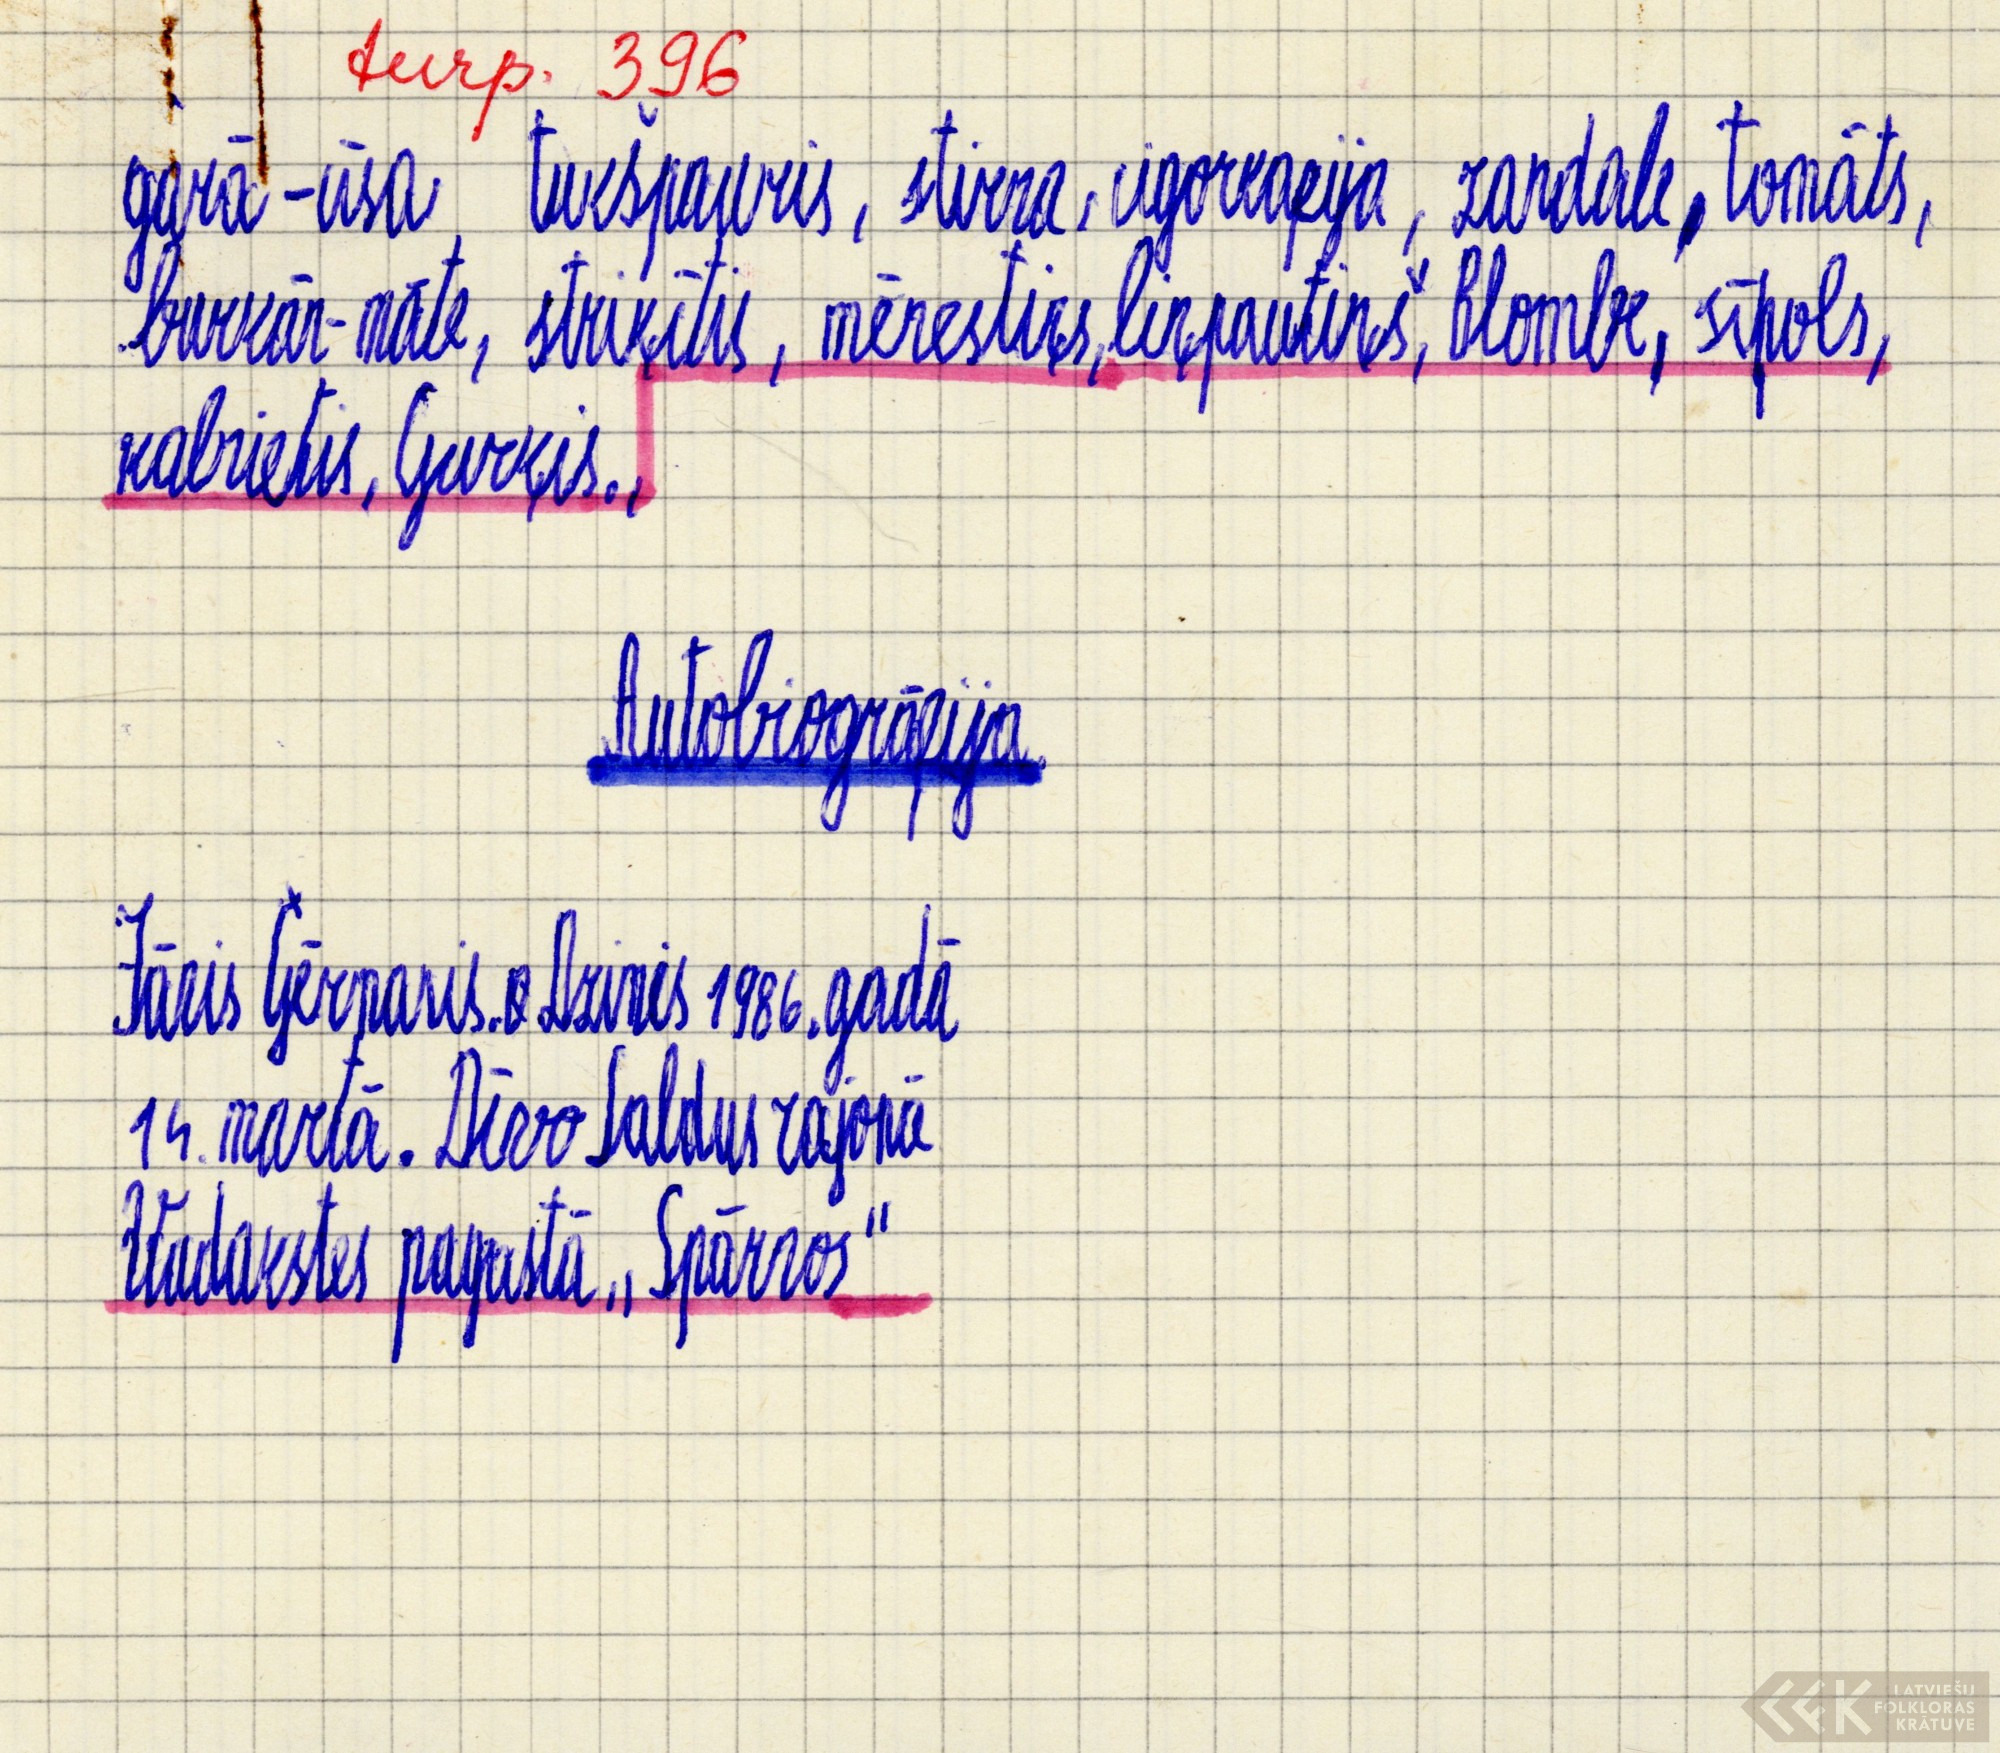 turp. 396
garā-ūsa, tukšpauris, stirna, cigorkafija, zandale, tomāts,
burkān-māte, striķītis, mēnestiņš, linpautiņš, Blombe, sīpols,
kabzietis, Gurķis.,
Autobiogrāfija
Jānis Ģērmanis. Dzimis 1986. gadā
14. martā. Dzīvo Saldus rajonā
Vadakstes pagastā „Spārnos"
LATVIEŠU
FOLKLORAS
KRĀTUVE